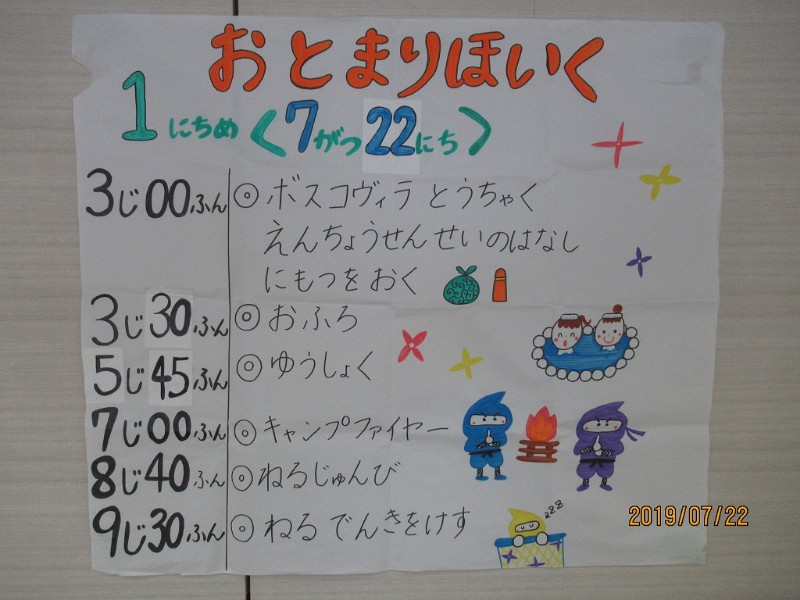 おとまりほいく
1にちめ〈7がつ22にち〉
3じ00ふん ◎ボスコヴィラ とうちゃく
えんちょうせんせいのはなし
にもつをおく
3じ30ふん ◎おふろ
5じ45ふん ◎ゆうしょく
7じ00ふん ◎キャンプファイヤー
8じ40ふん ◎ねるじゅんび
9じ30ふん ◎ねる でんきをけす
zzz
2019/07/22